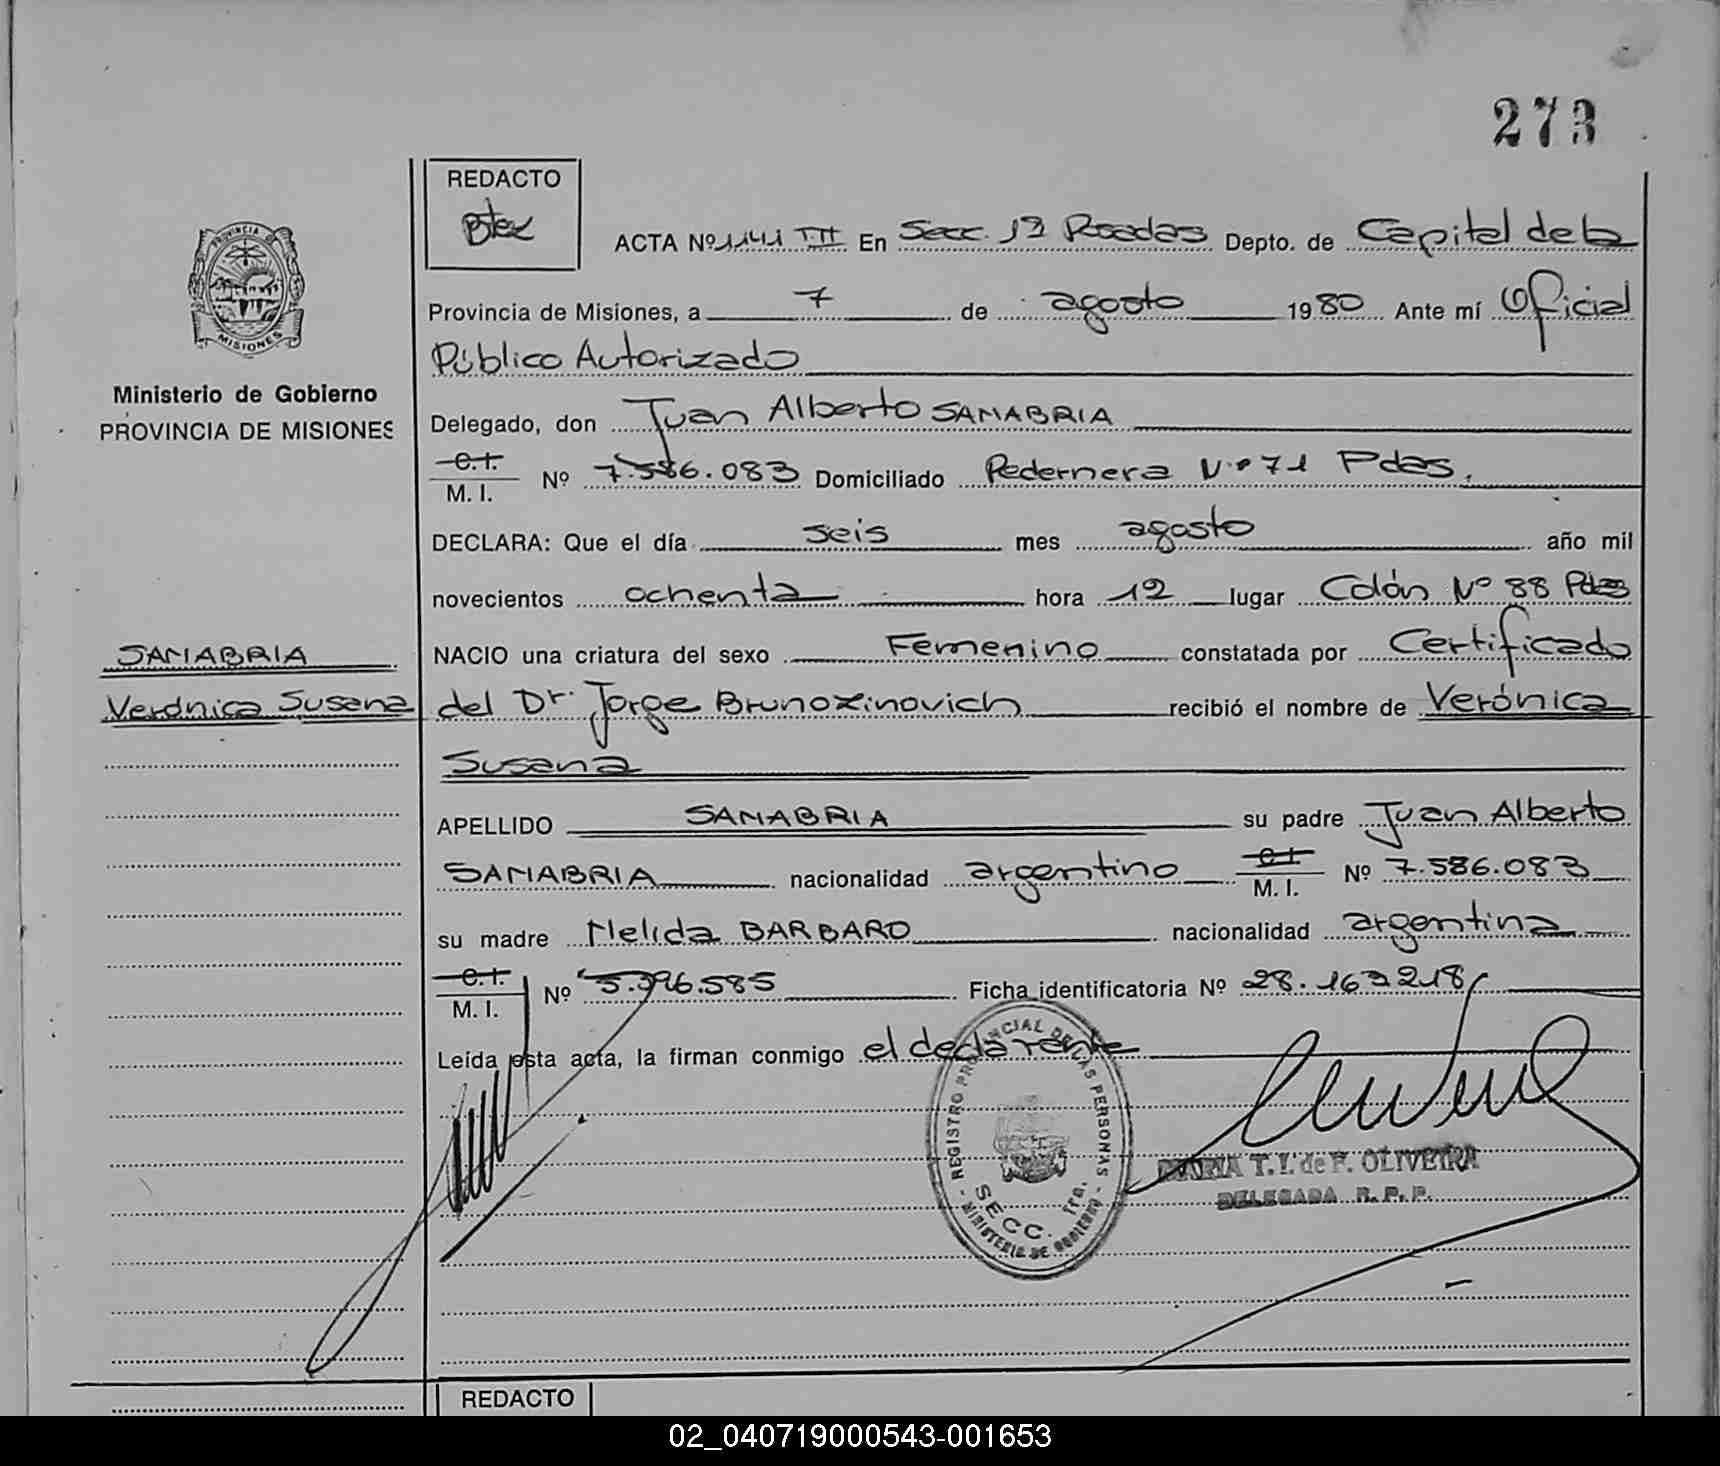 273
REDACTO
ACTA Nº 1141 T.II En Secc. 1ª Posadas Depto. de Capital de la
PROVINCIA DE
MISIONES
Provincia de Misiones, a 7 de agosto 1980 Ante mí Oficial
Público Autorizado
Ministerio de Gobierno
PROVINCIA DE MISIONES
Delegado, don Juan Alberto SANABRIA
C.I.
M. I. Nº 7.586.083 Domiciliado Pedernera Nº 71 Pdas.
DECLARA: Que el día seis mes agosto año mil
novecientos ochenta hora 12 lugar Colón Nº 88 Pdas
SANABRIA
NACIO una criatura del sexo Femenino constatada por Certificado
Verónica Susana
del Dr. Jorge Brunozinovich recibió el nombre de Verónica
Susana
APELLIDO SANABRIA su padre Juan Alberto
SANABRIA nacionalidad argentino C.I. M. I. Nº 7.586.083
su madre Nelida BARBARO nacionalidad argentina
C.I.
M. I. Nº 5.396.585 Ficha identificatoria Nº 28.163218
Leída esta acta, la firman conmigo el declarante
- REGISTRO PROVINCIAL DE LAS PERSONAS -
SECC. 1ra.
MINISTERIO DE GOBIERNO
MARIA T. I. de F. OLIVEIRA
DELEGADA R. P. P.
REDACTO
02_040719000543-001653